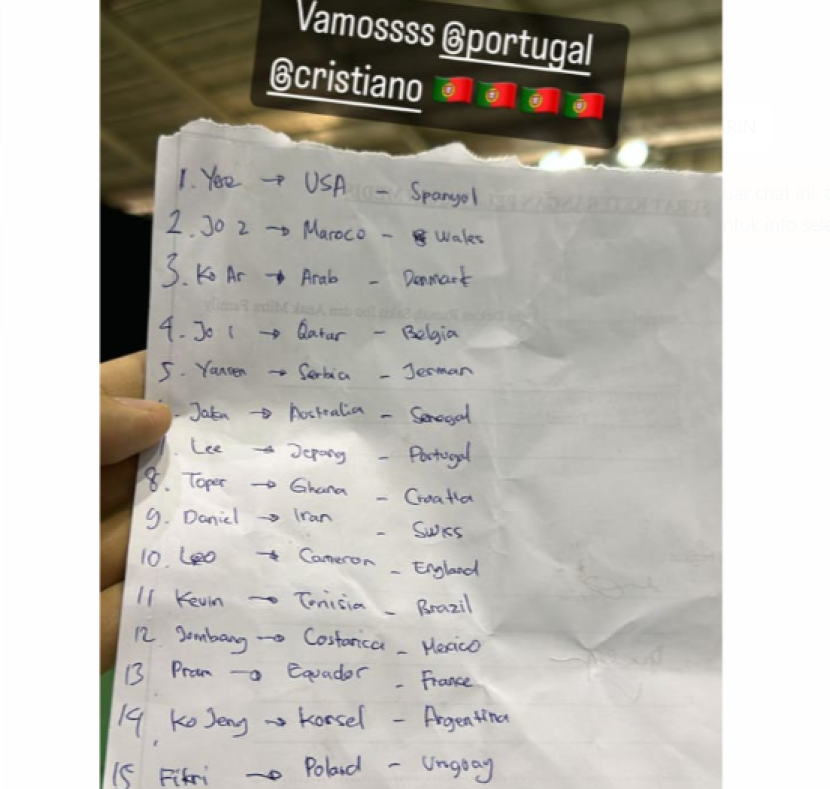 Vamossss @portugal
@cristiano
1. Yere → USA - Spanyol
2. Jo 2 → Maroco - Wales
3. Ko Ar → Arab - Denmark
4. Jo 1 → Qatar - Belgia
5. Yansen → Serbia - Jerman
. Jaka → Australia - Senegal
. Lee → Jepang - Portugal
8. Toper → Ghana - Croatia
9. Daniel → Iran - Swiss
10. Leo → Cameron - England
11 Kevin → Tunisia - Brazil
12 Jombang → Costarica - Mexico
13 Pram → Equador - France
14. Ko Jeng → Korsel - Argentina
15 Fikri → Poland - Urugoay